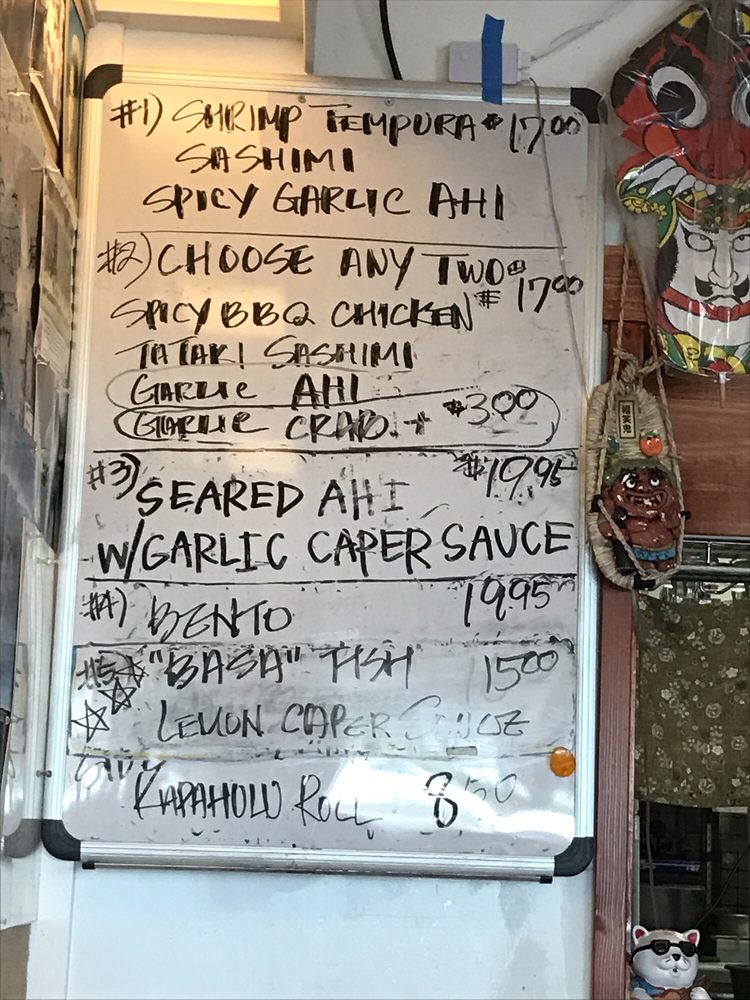 #1) SHRIMP TEMPURA $17.00
SASHIMI
SPICY GARLIC AHI
#2) CHOOSE ANY TWO
SPICY BBQ CHICKEN $17.00
TATAKI SASHIMI
GARLIC AHI
GARLIC CRAB + $3.00
#3) SEARED AHI $19.95
W/GARLIC CAPER SAUCE
#4) BENTO 19.95
#5 "BASA" FISH 15.00
LEMON CAPER SAUCE
KAPAHULU ROLL 8.50